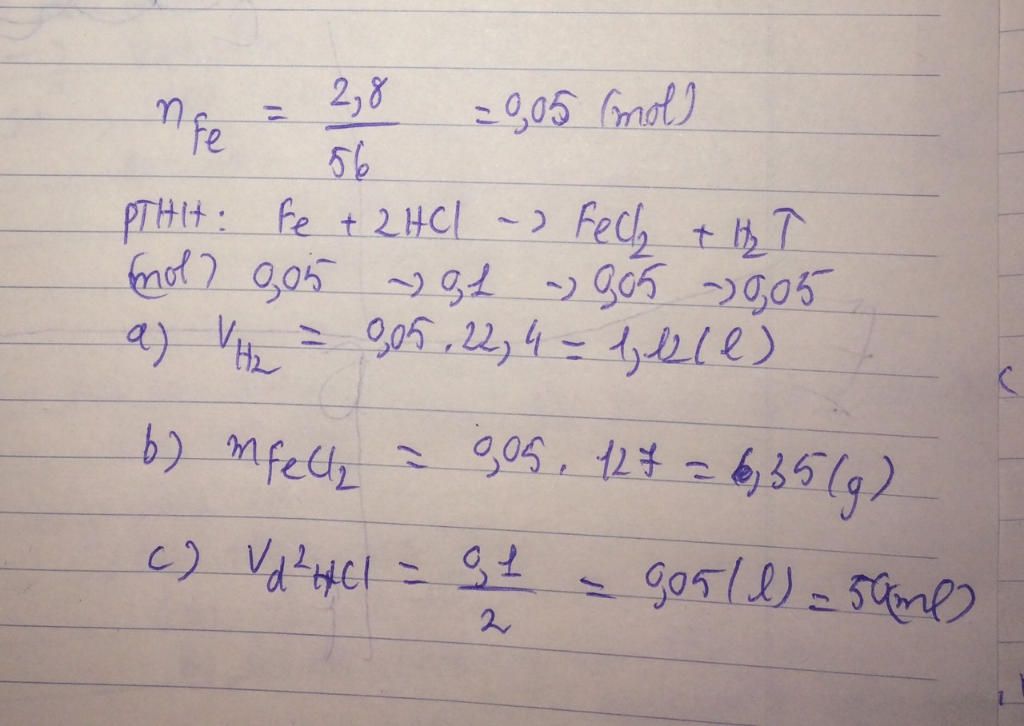 n Fe = 2,8 / 56 = 0,05 (mol)
PTHH: Fe + 2HCl -> FeCl₂ + H₂ ↑
(mol) 0,05 -> 0,1 -> 0,05 -> 0,05
a) V H₂ = 0,05 . 22,4 = 1,12 (l)
b) m FeCl₂ = 0,05 . 127 = 6,35 (g)
c) V d² HCl = 0,1 / 2 = 0,05 (l) = 50(ml)